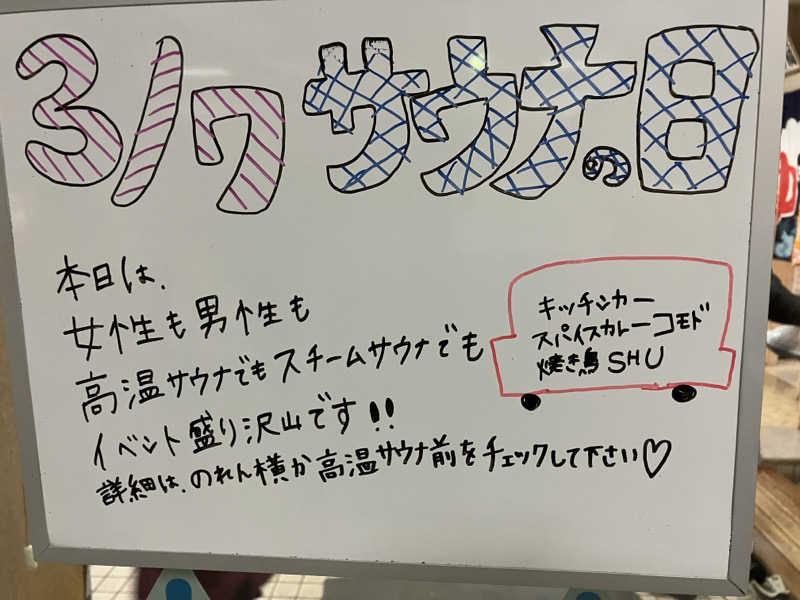 3/7 サウナの日
本日は、
女性も男性も
高温サウナでもスチームサウナでも
イベント盛り沢山です!!
詳細は、のれん横か高温サウナ前をチェックして下さい♡
キッチンカー
スパイスカレーコモド
焼き鳥 SHU